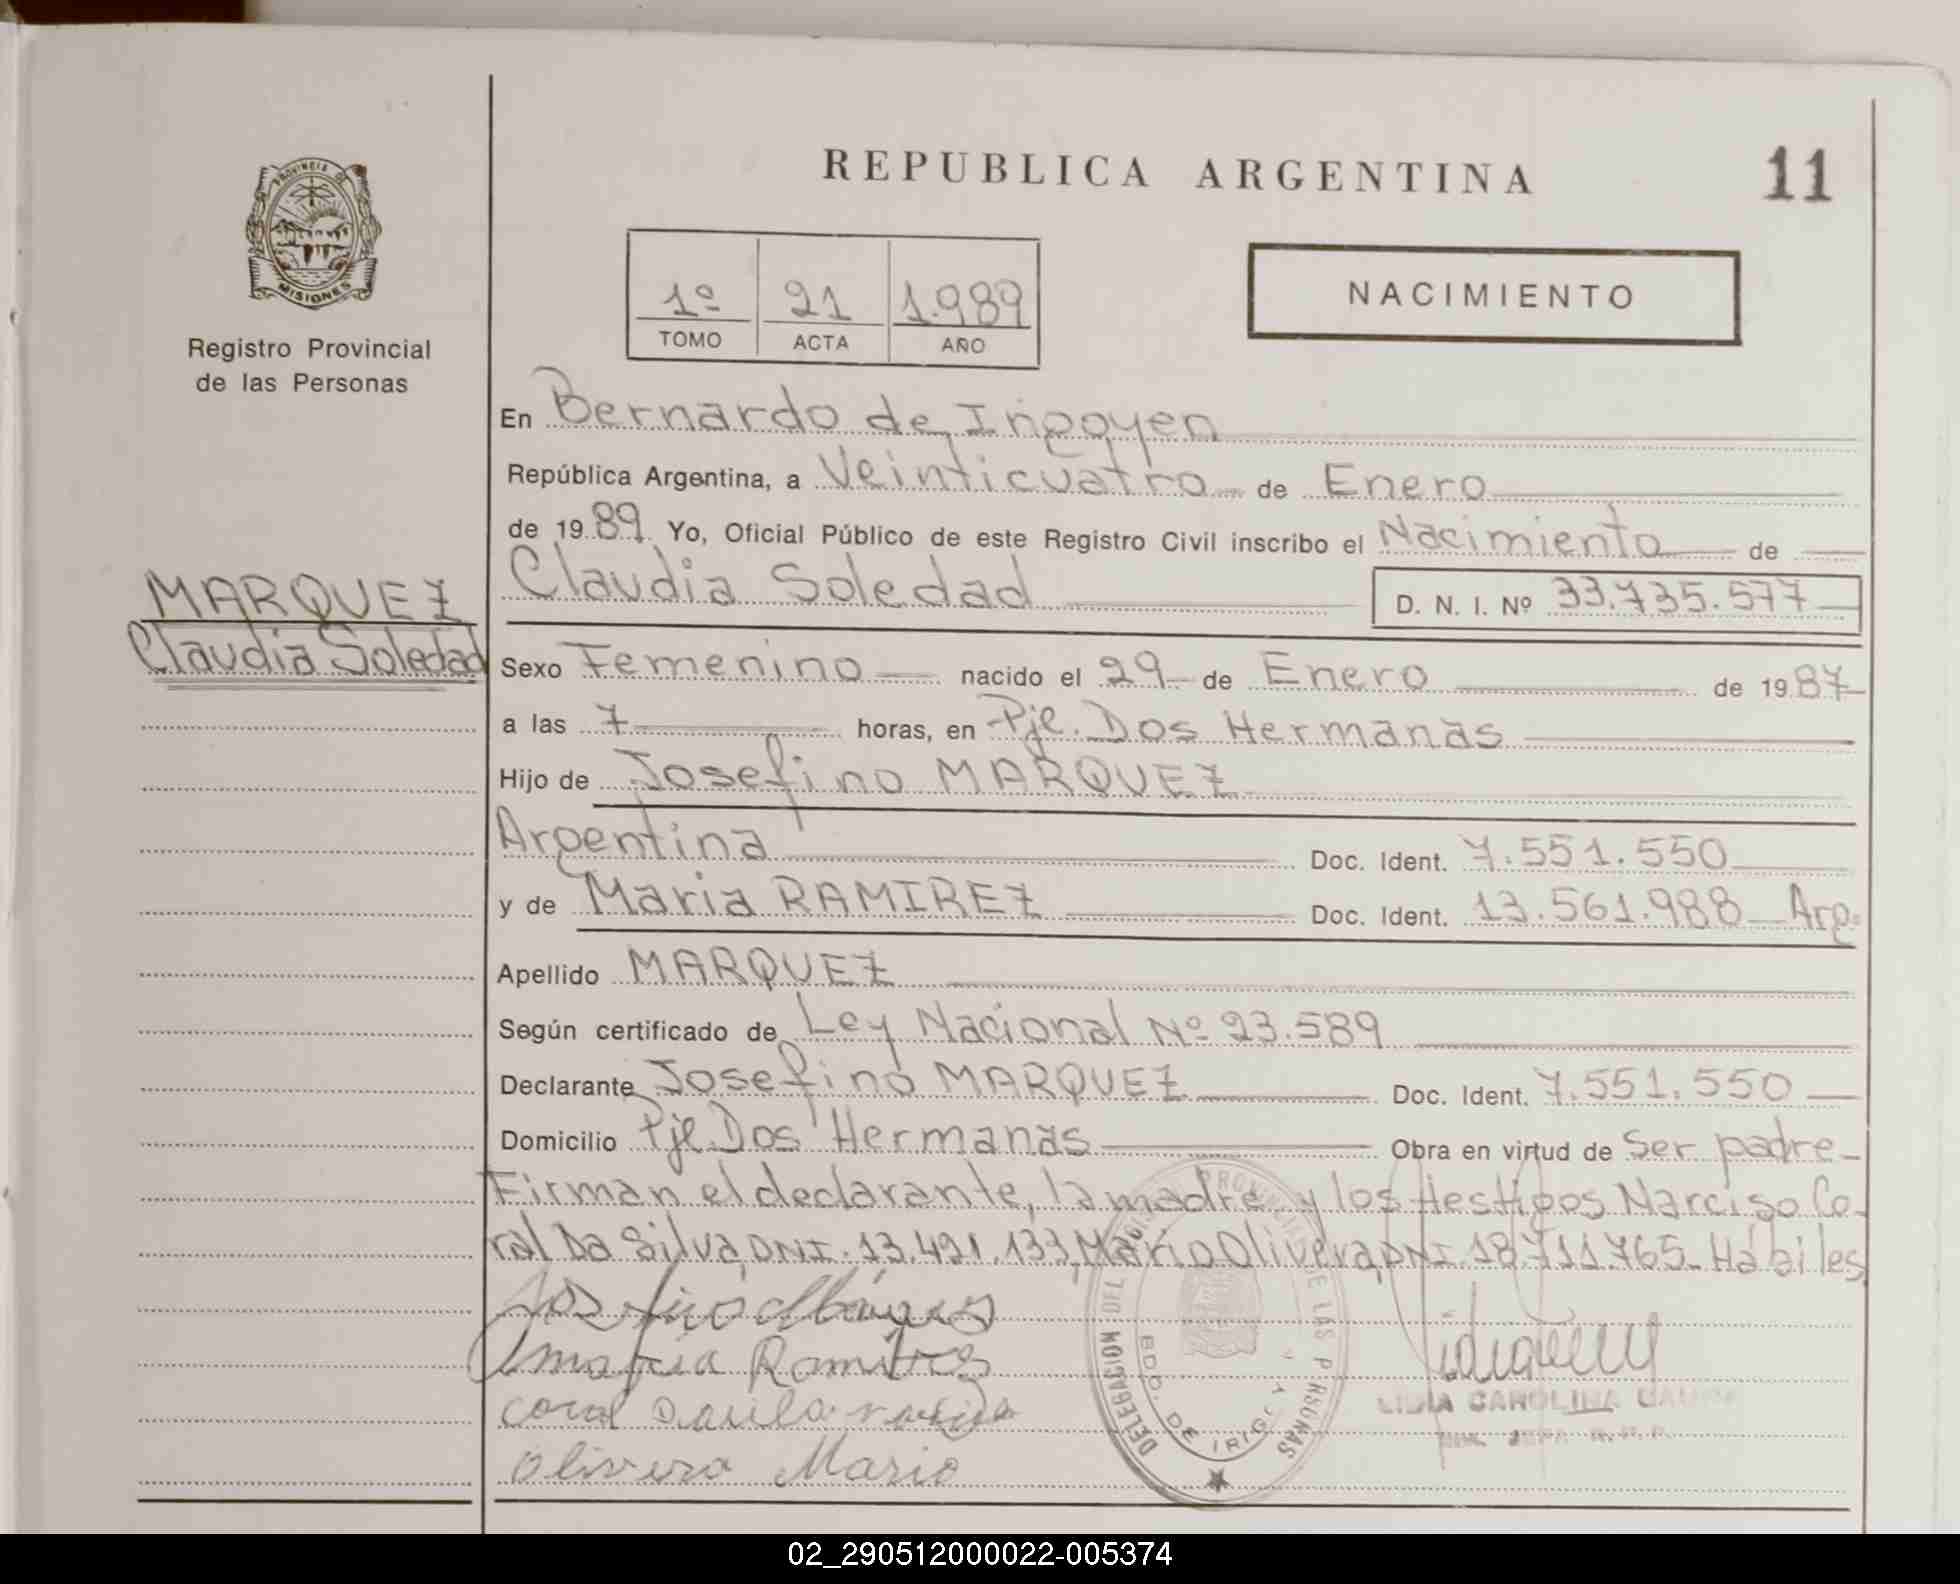 REPUBLICA ARGENTINA
11
PROVINCIA DE
MISIONES
Registro Provincial
de las Personas
1º 21 1.989
TOMO ACTA AÑO
NACIMIENTO
En Bernardo de Irigoyen
República Argentina, a Veinticuatro de Enero
de 1989 Yo, Oficial Público de este Registro Civil inscribo el Nacimiento de
Claudia Soledad D. N. I. Nº 33.735.577
MARQUEZ
Claudia Soledad
Sexo Femenino nacido el 29 de Enero de 1987
a las 7 horas, en Pje. Dos Hermanas
Hijo de Josefino MARQUEZ
Argentina Doc. Ident. 7.551.550
y de Maria RAMIREZ Doc. Ident. 13.561.988 Arg.
Apellido MARQUEZ
Según certificado de Ley Nacional Nº 23.589
Declarante Josefino MARQUEZ Doc. Ident. 7.551.550
Domicilio Pje. Dos Hermanas Obra en virtud de Ser padre
Firman el declarante, la madre y los testigos Narciso Co-
ral Da Silva, DNI. 13.421.133, Mario Olivera, DNI. 18.711.765. Hábiles
Maria Ramires
Olivera Mario
DELEGACION DEL REGISTRO PROVINCIAL DE LAS PERSONAS
BDO. DE IRIGOYEN
CAROLINA
02_290512000022-005374